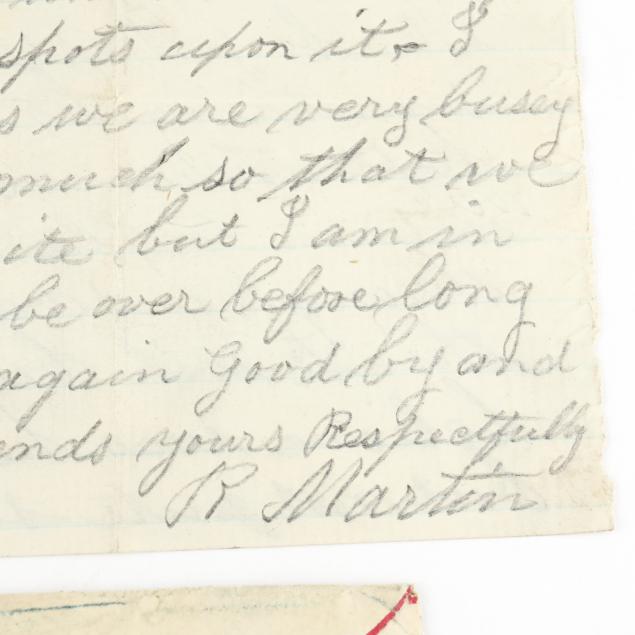 spots upon it. I
s we are very busey
much so that we
ite but I am in
be over before long
again Good by and
ends yours Respectfully
R Martin